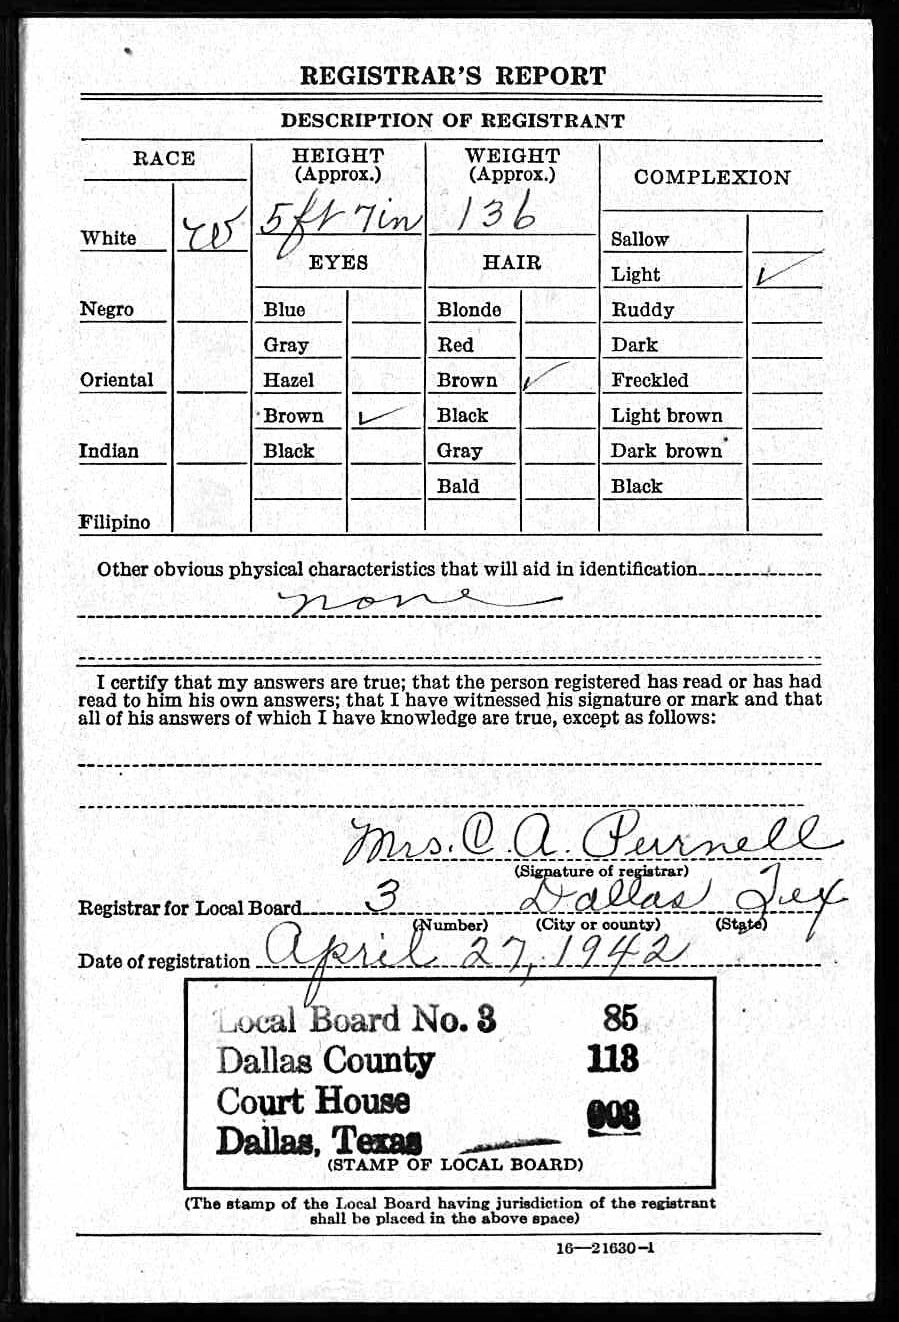 REGISTRAR'S REPORT
DESCRIPTION OF REGISTRANT
RACE
HEIGHT
(Approx.)
WEIGHT
(Approx.)
COMPLEXION
White W
5 ft 7 in
136
Sallow
EYES
HAIR
Light ✓
Negro
Blue
Blonde
Ruddy
Gray
Red
Dark
Oriental
Hazel
Brown ✓
Freckled
Brown ✓
Black
Light brown
Indian
Black
Gray
Dark brown
Bald
Black
Filipino
Other obvious physical characteristics that will aid in identification
none
I certify that my answers are true; that the person registered has read or has had
read to him his own answers; that I have witnessed his signature or mark and that
all of his answers of which I have knowledge are true, except as follows:
Mrs. C. A. Purnell
(Signature of registrar)
Registrar for Local Board 3 Dallas Tex
(Number) (City or county) (State)
Date of registration April 27, 1942
Local Board No. 3 85
Dallas County 113
Court House 003
Dallas, Texas
(STAMP OF LOCAL BOARD)
(The stamp of the Local Board having jurisdiction of the registrant
shall be placed in the above space)
16—21630-1